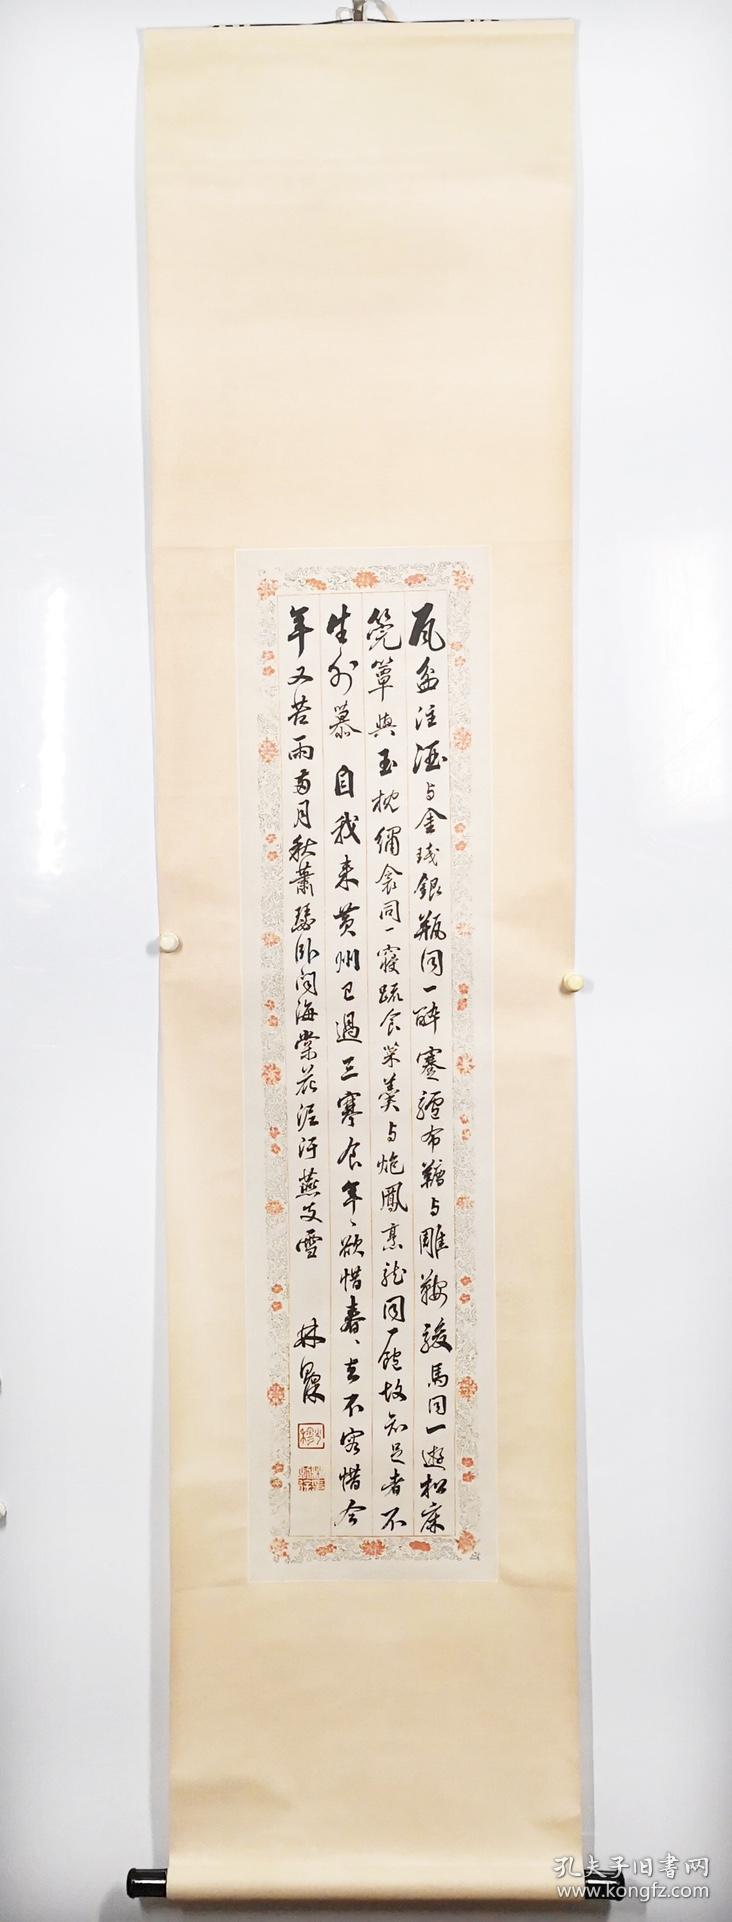 瓦盆注酒与金琖銀瓶同一醉蹇驢布韉与雕鞍駿馬同一遊松床
筦簟與玉枕繡衾同一寢疏食菜羹与炮鳳烹龙同一飽故知足者不
生外慕 自我来黄州已過三寒食年、欲惜春、去不容惜今
年又苦雨两月秋蕭瑟卧闻海棠花泥汙燕支雪
林
孔夫子旧書网
www.kongfz.com